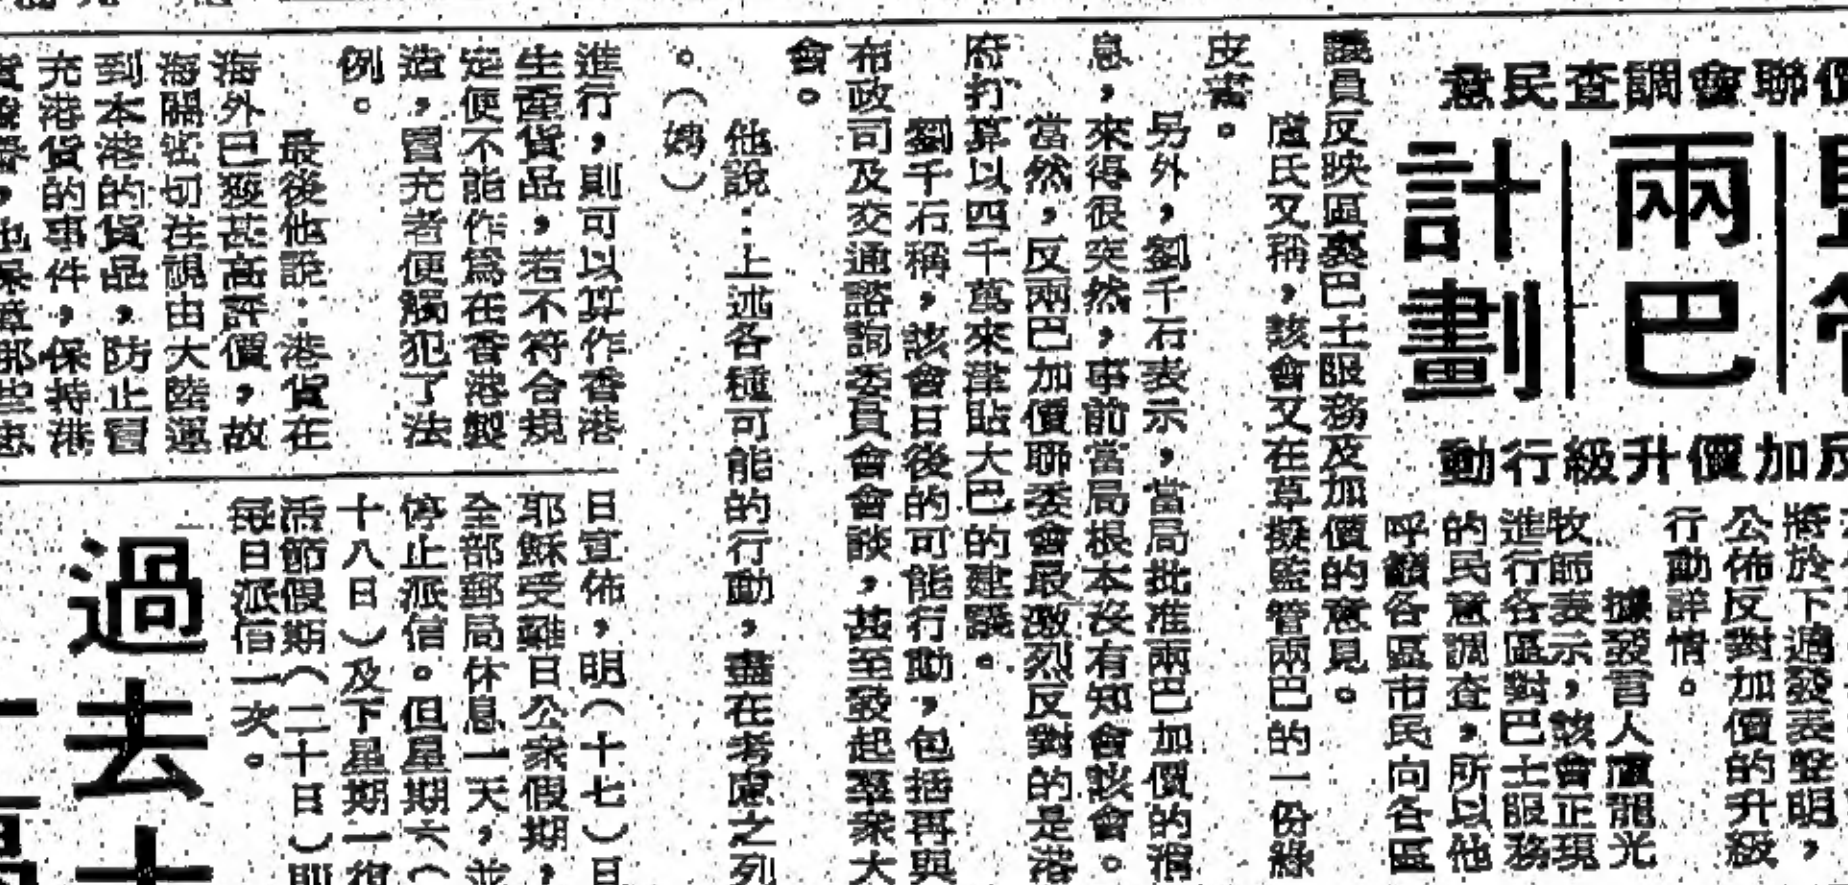 聯會調查民意
兩巴
計劃
加價升級行動
將於下週發表聲明，
公佈反對加價的升級
行動詳情。
據發言人盧龍光
牧師表示，該會正現
進行各區對巴士服務
的民意調查，所以他
呼籲各區市民向各區
議員反映區裏巴士服務及加價的意見。
盧氏又稱，該會又在草擬監管兩巴的一份綠
皮書。
另外，劉千石表示，當局批准兩巴加價的消
息，來得很突然，事前當局根本沒有知會該會。
當然，反兩巴加價聯委會最激烈反對的是港
府打算以四千萬來津貼大巴的建議。
劉千石稱，該會日後的可能行動，包括再與
布政司及交通諮詢委員會會談，甚至發起羣衆大
會。
他說：上述各種可能的行動，盡在考慮之列
。（娉）
進行，則可以算作香港
生產貨品，若不符合規
定便不能作爲在香港製
造，冒充者便觸犯了法
例。
最後他說：港貨在
海外已獲甚高評價，故
海關密切注視由大陸運
到本港的貨品，防止冒
充港貨的事件，保持港
日宣佈，明（十七）日
耶穌受難日公衆假期，
全部郵局休息一天，並
停止派信。但星期六（
十八日）及下星期一復
活節假期（二十日）則
每日派信一次。
過去